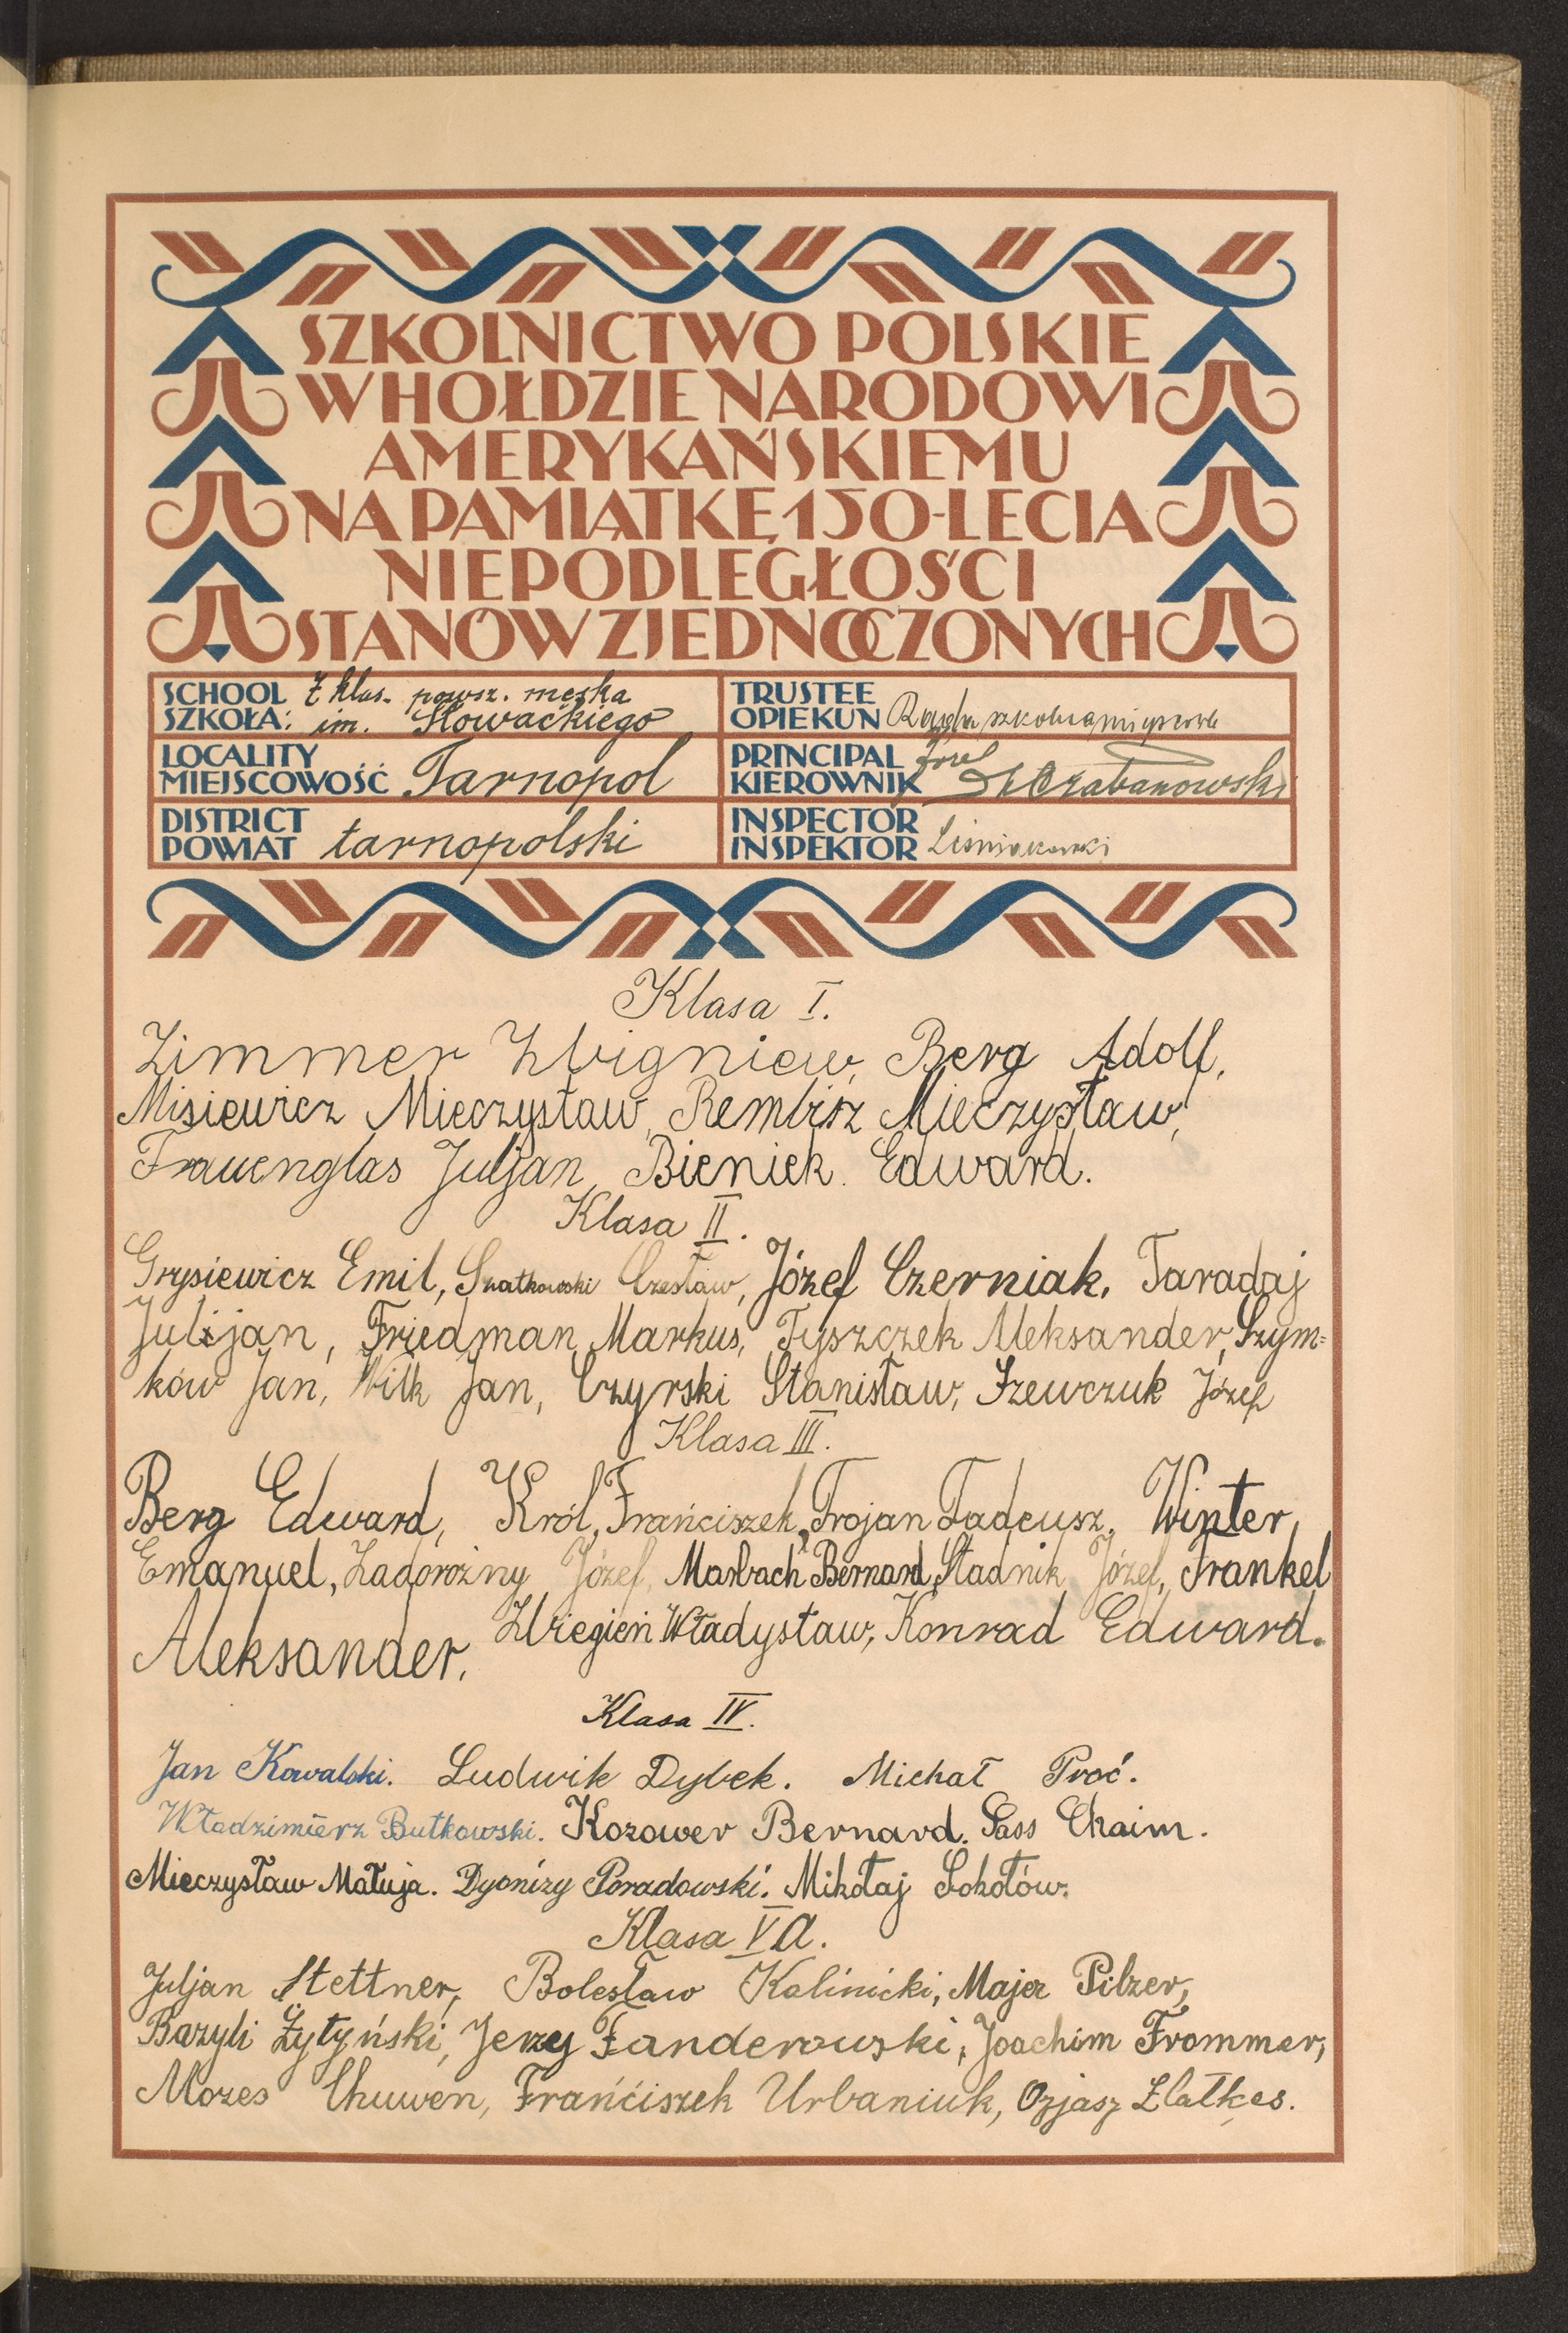 SZKOLNICTWO POLSKIE
W HOŁDZIE NARODOWI
AMERYKAŃSKIEMU
NA PAMIĄTKĘ 150-LECIA
NIEPODLEGŁOŚCI
STANÓW ZJEDNOCZONYCH
SCHOOL 7 klas. powsz. męska
SZKOŁA: im. Słowackiego
TRUSTEE
OPIEKUN Rada szkolna miejscowa
LOCALITY
MIEJSCOWOŚĆ Tarnopol
PRINCIPAL Józef
KIEROWNIK
DISTRICT
POWIAT tarnopolski
INSPECTOR
INSPEKTOR
Klasa I.
Zimmer Zbigniew, Berg Adolf,
Misiewicz Mieczysław, Rembisz Mieczysław,
Frauenglas Juljan, Bieniek Edward.
Klasa II.
Grysiewicz Emil, Szatkowski Czesław, Józef Czerniak, Taradaj
Julijan, Friedman Markus, Tyszczek Aleksander, Szym=
ków Jan, Wilk Jan, Czyrski Stanisław, Szewczuk Józef
Klasa III.
Berg Edward, Król Frańciszek, Trojan Tadeusz, Winter
Emanuel, Zadorożny Józef, Marbach Bernard, Stadnik Józef, Frankel
Aleksander, Zbiegień Władysław, Konrad Edward.
Klasa IV.
Jan Kowalski. Ludwik Dybek. Michał Proć.
Włodzimierz Butkowski. Kozower Bernard. Sass Chaim.
Mieczysław Matuja. Dyonizy Poradowski. Mikołaj Sokołów.
Klasa V A.
Juljan Stettner, Bolesław Kalinicki, Majer Pilzer,
Bazyli Żytyński, Jerzy Fanderowski, Joachim Frommer,
Mozes Chuwen, Frańciszek Urbaniuk, Ozjasz Zlatkes.